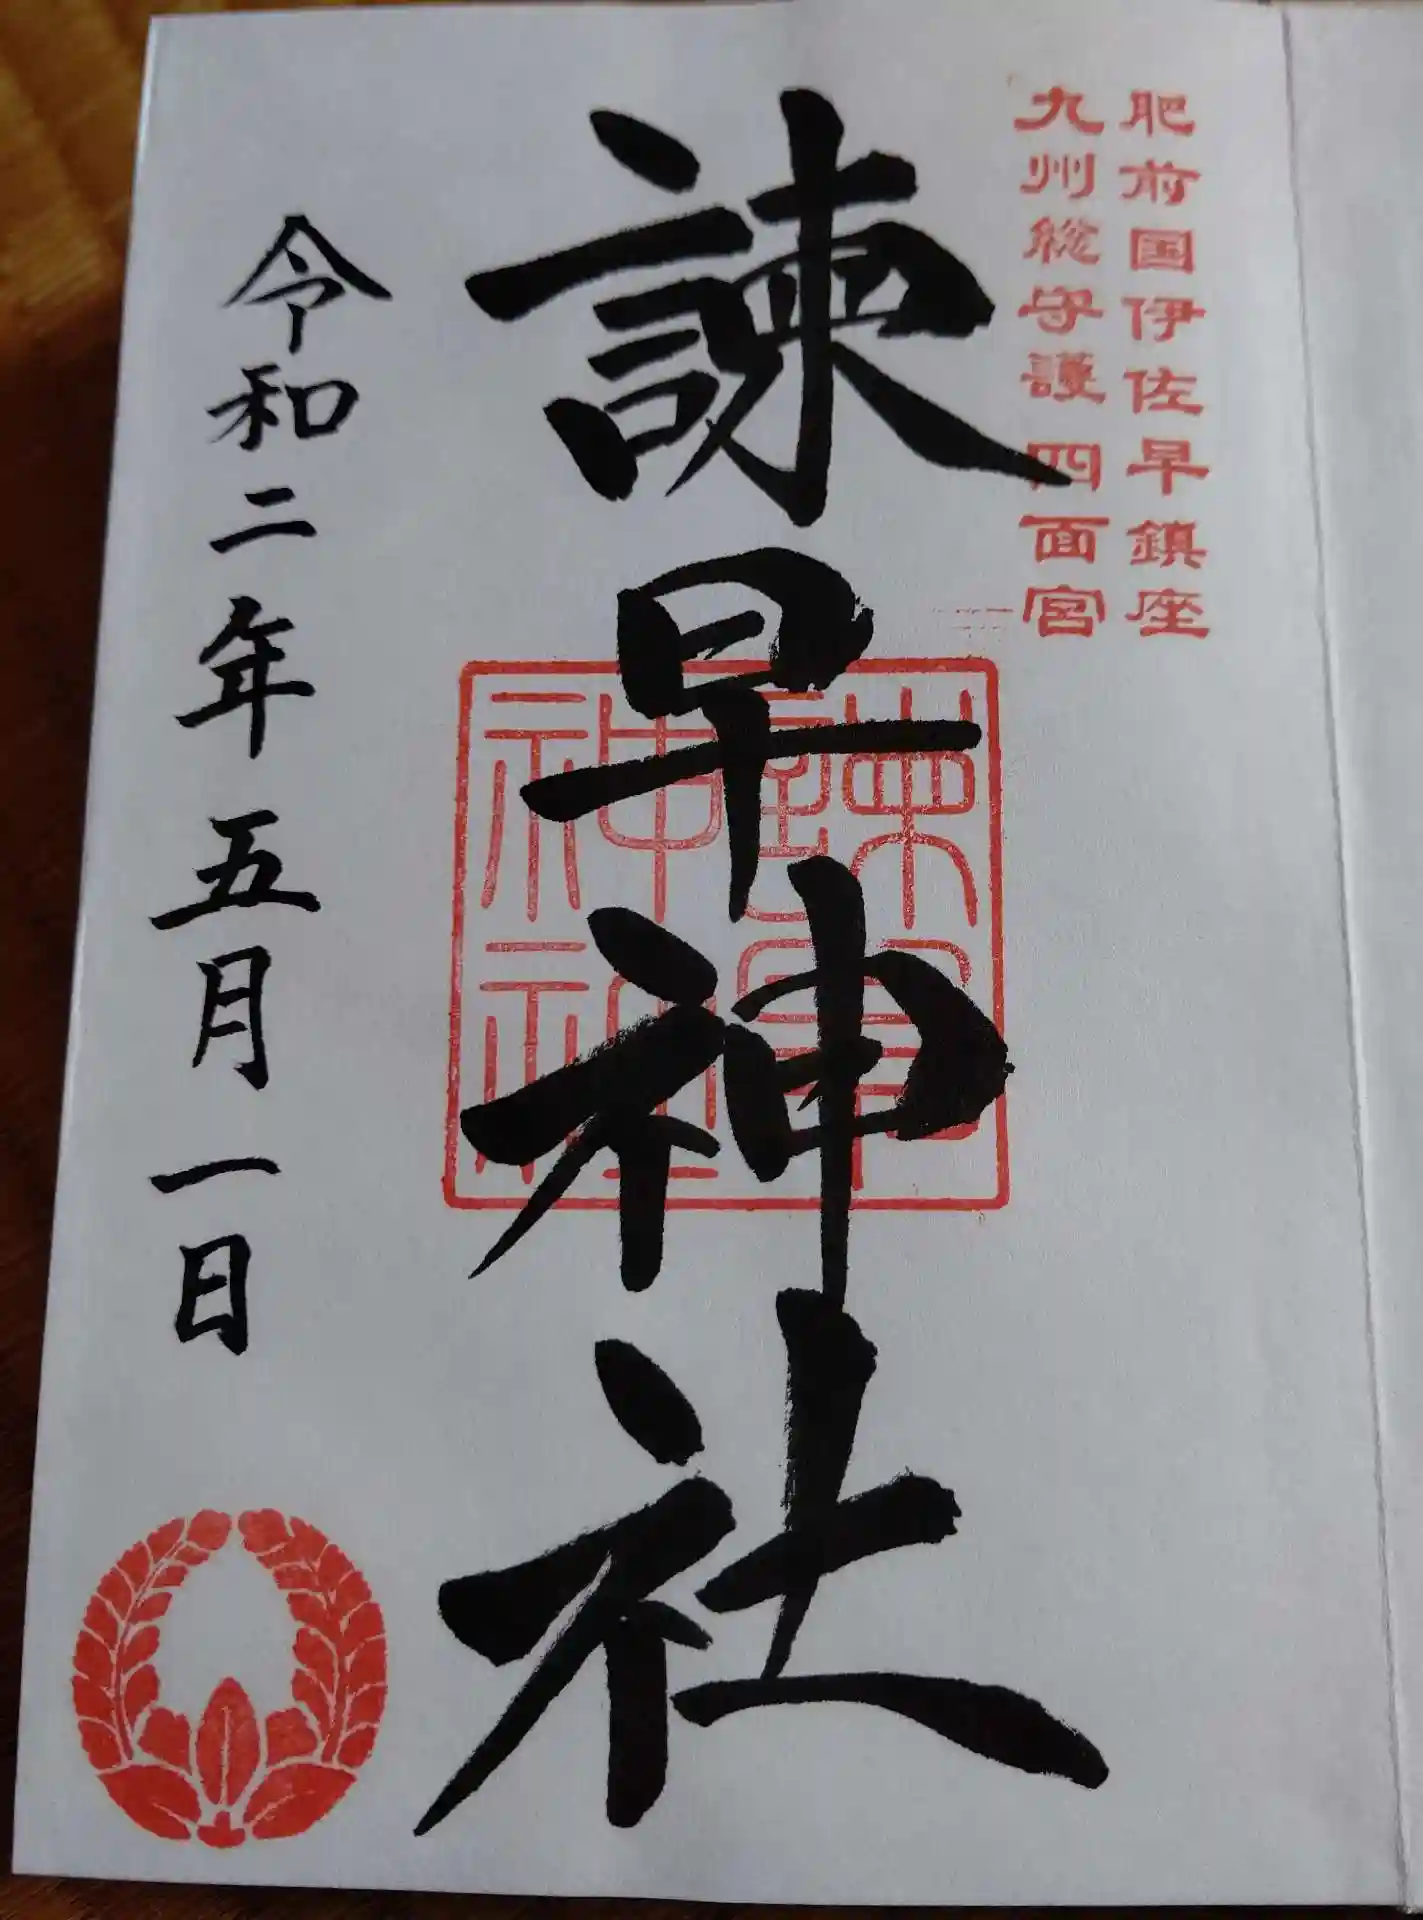 肥前国伊佐早鎮座
九州総守護四面宮
諫早神社
諫早
神社
令和二年五月一日